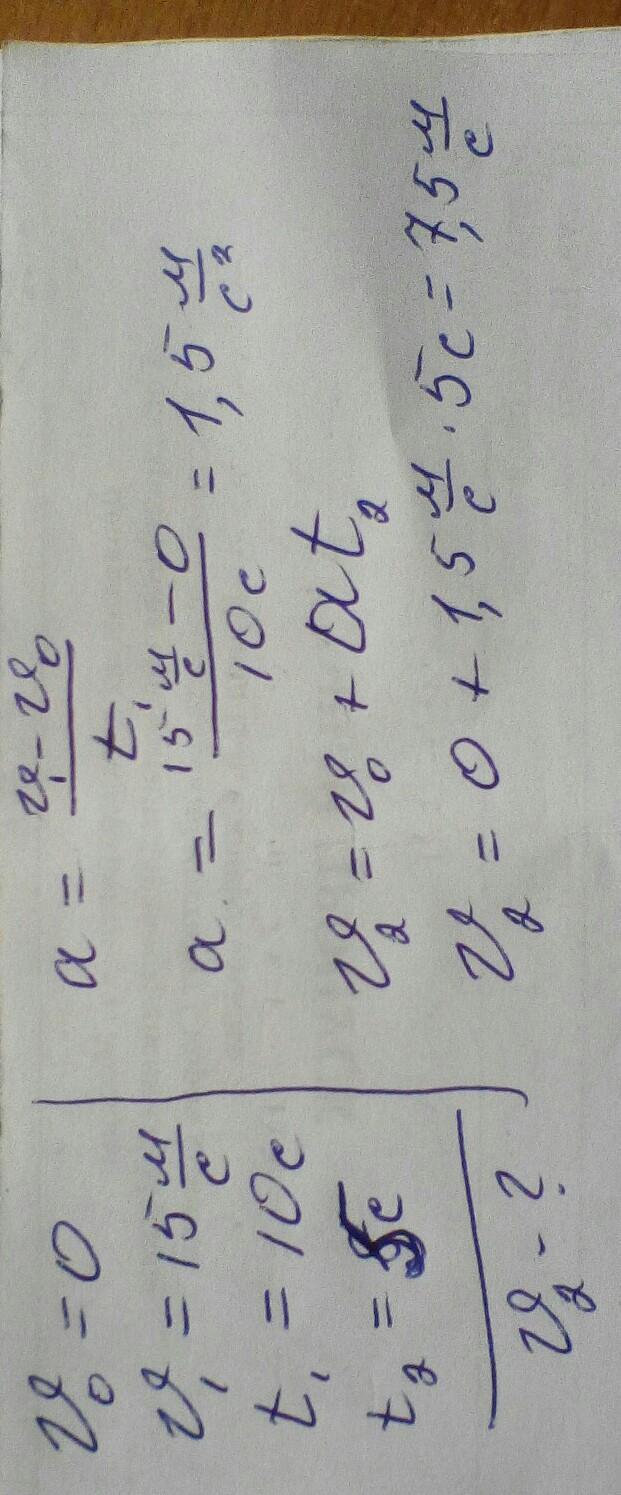 v₀ = 0
v₁ = 15 м/с
t₁ = 10с
t₂ = 5с
v₂ - ?
a = (v₁ - v₀)/t₁
a = (15 м/с - 0)/10с = 1,5 м/с²
v₂ = v₀ + at₂
v₂ = 0 + 1,5 м/с · 5с = 7,5 м/с